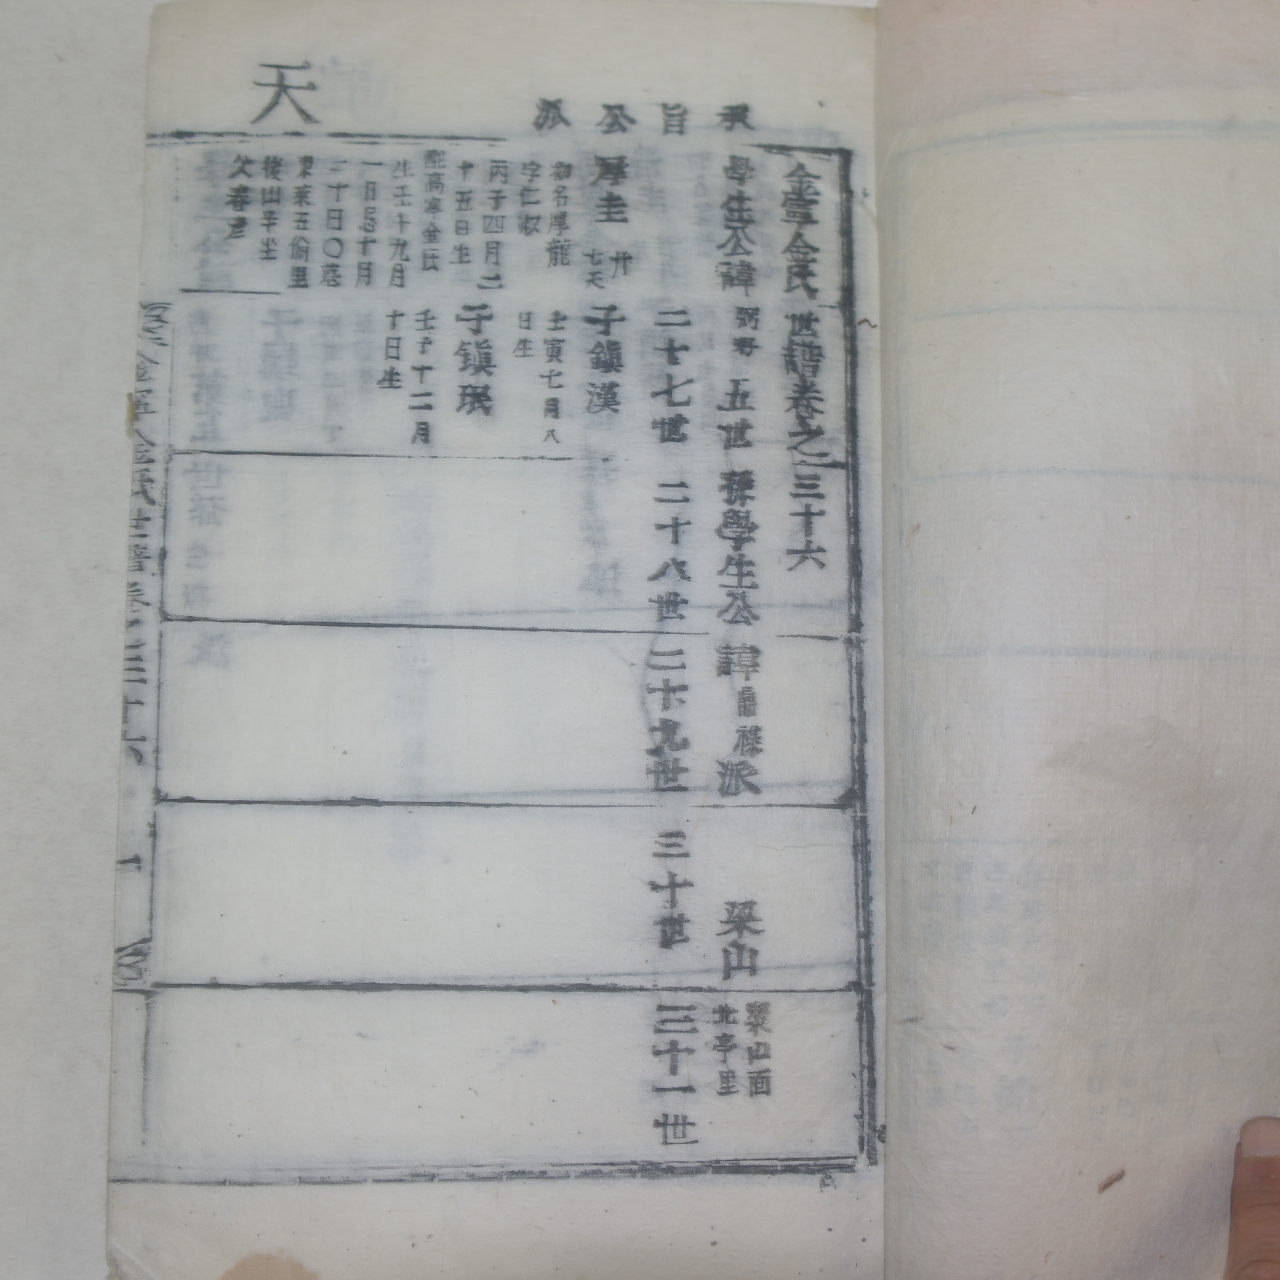 天
承旨公派
金寧金氏世譜卷之三十六
學生公諱
五世孫學生公諱
派
梁山
梁山面
北亭里
二十七世
二十八世
二十九世
三十世
三十一世
厚圭
卅
七天
初名厚龍
字仁叔
丙子四月二
十五日生
配高寧金氏
生壬午九月
一日忌十月
二十日○墓
東萊五倫里
後山辛坐
父春彦
子鎭漢
壬寅七月八
日生
子鎭珉
壬子十二月
十日生
金寧金氏世譜卷之三十六
一